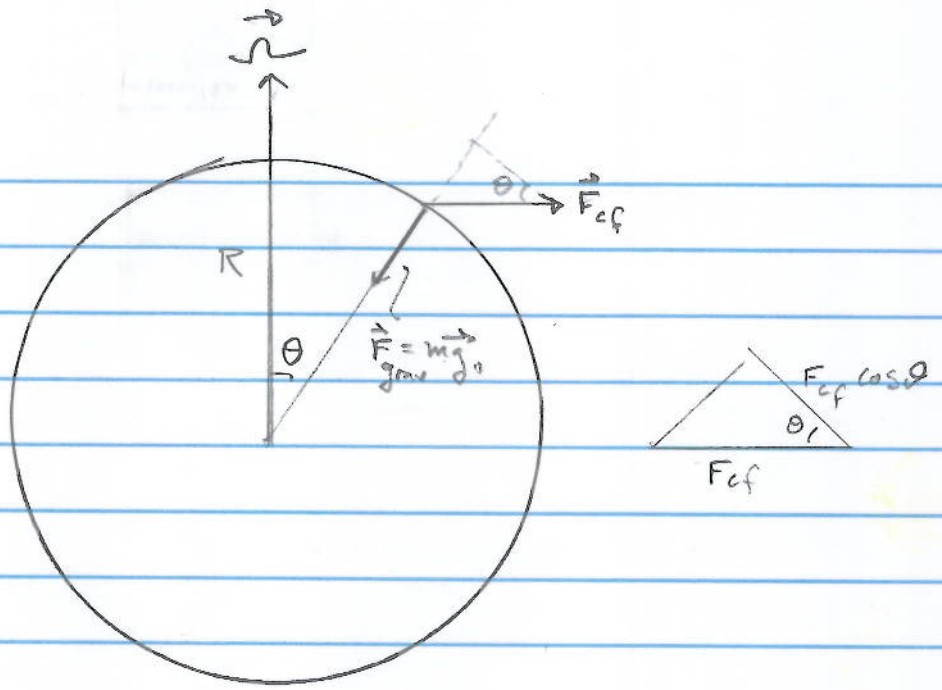 Ω⃗
θ
F⃗_cf
R
θ
F⃗_grav = mg⃗₀
F_cf cosθ
θ
F_cf